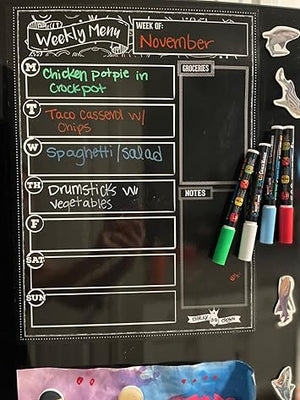 Weekly Menu
WEEK OF:
November
M
Chicken potpie in
Crockpot
GROCERIES
T
Taco Casserol w/
Chips
W
Spaghetti/salad
TH
Drumsticks w/
vegetables
NOTES
F
SAT
SUN